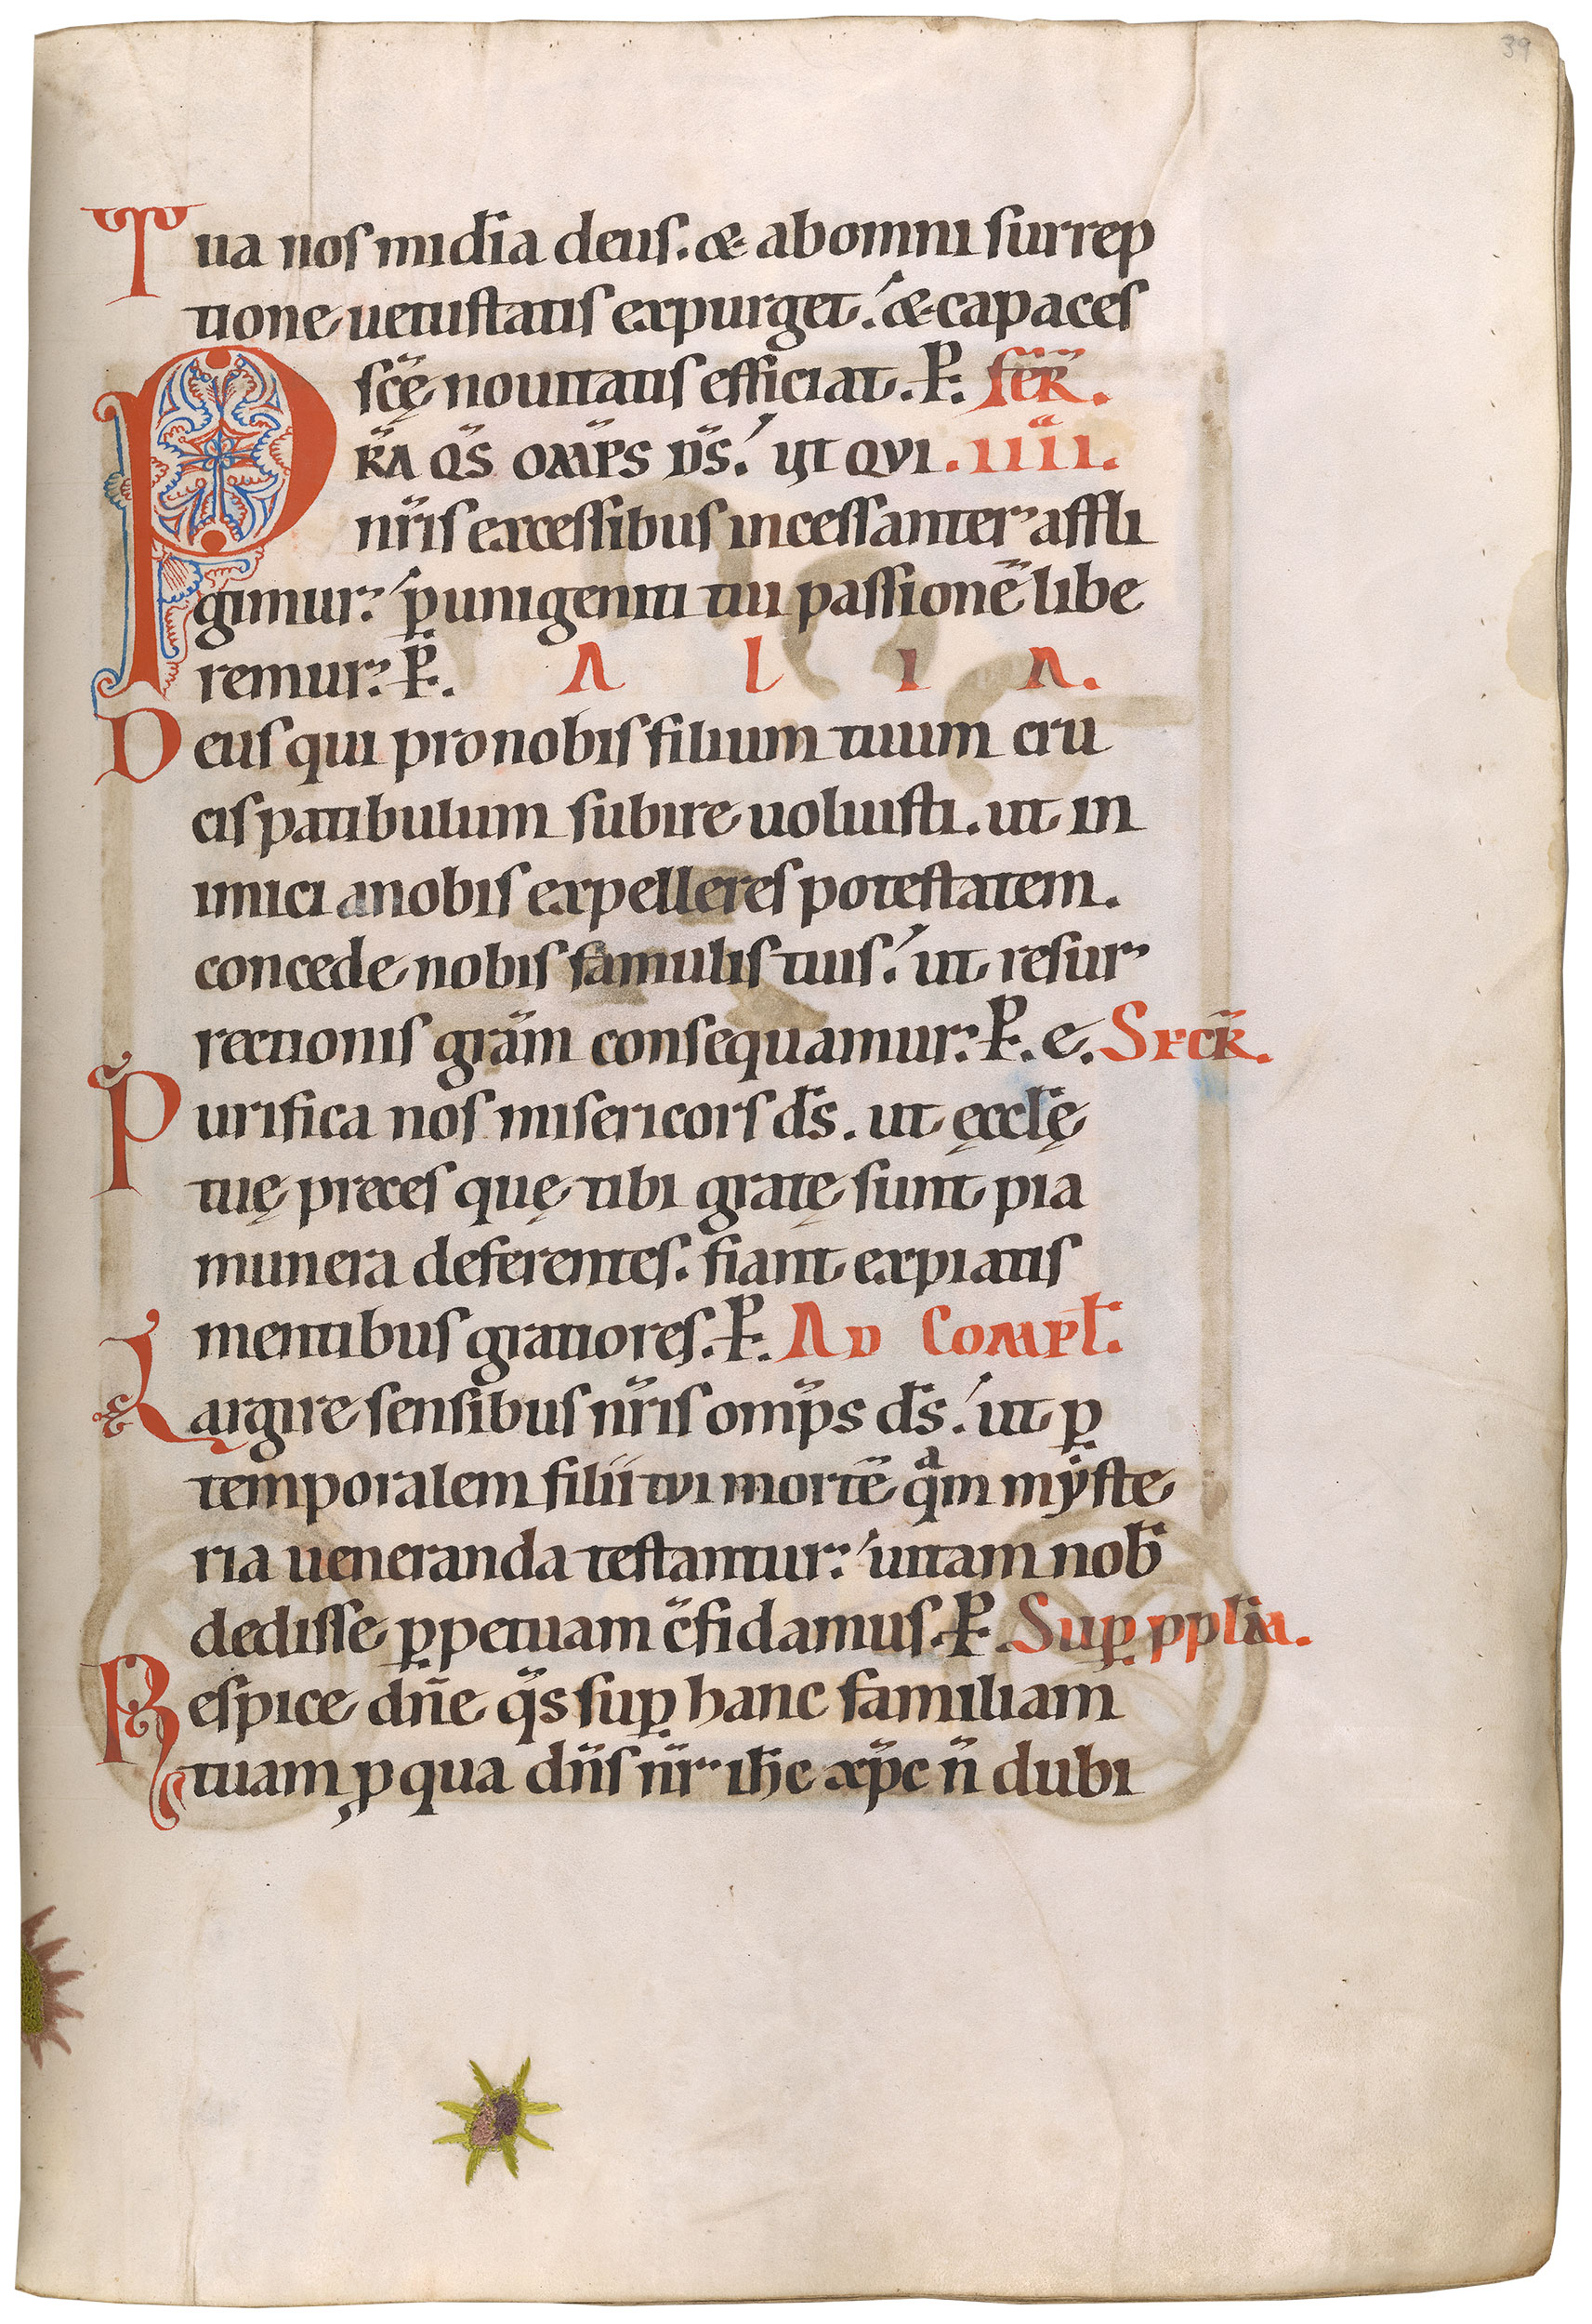 39
Tua nos mĩdia deus. & ab omni surrep
tione uetustatis expurget. & capaces
sc̄ę nouitatis efficiat. P. FER̄.
PR̄A Q̄S OM̄PS D̄S. UT QUI .IIII.
nr̄is excessibus incessanter affli
gimur. ꝑ unigeniti tui passionē libe
remur. P. ALIA.
Deus qui pro nobis filium tuum cru
cis patibulum subire uoluisti. ut in
imici a nobis expelleres potestatem.
concede nobis famulis tuis. ut resur
rectionis grām consequamur. P. e. SECR̄.
Purifica nos misericors d̄s. ut ęccl̄ę
tuę preces quę tibi gratę sunt pia
munera deferentes. fiant expiatis
mentibus gratiores. P. AD COMPL̄.
Largire sensibus nr̄is omp̄s d̄s. ut ꝑ
temporalem filii tui mortē qᵃm mẏste
ria ueneranda testantur. uitam nob̄
dedisse ꝑpetuam c̄fidamus. P. Suꝑ ppl̄m.
Respice dn̄e q̄s suꝑ hanc familiam
tuam ꝓ qua dn̄s nr̄ ih̄c xp̄c n̄ dubi